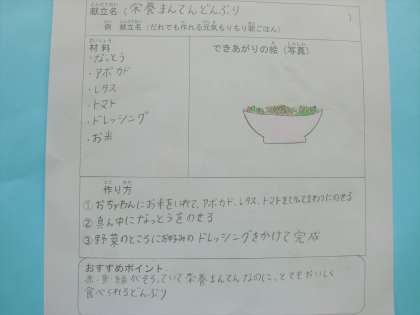 献立名（栄養まんてんどんぶり ）
例 献立名（だれでも作れる元気もりもり朝ごはん）
材料
・なっとう
・アボカド
・レタス
・トマト
・ドレッシング
・お米
できあがりの絵（写真）
作り方
①おちゃわんにお米をいれて、アボカド、レタス、トマトを
②真ん中になっとうをのせる
③野菜のところにお好みのドレッシングをかけて完成
おすすめポイント
赤・黄・緑がそろっていて栄養まんてんなのに、とてもおいしく
食べられるどんぶり